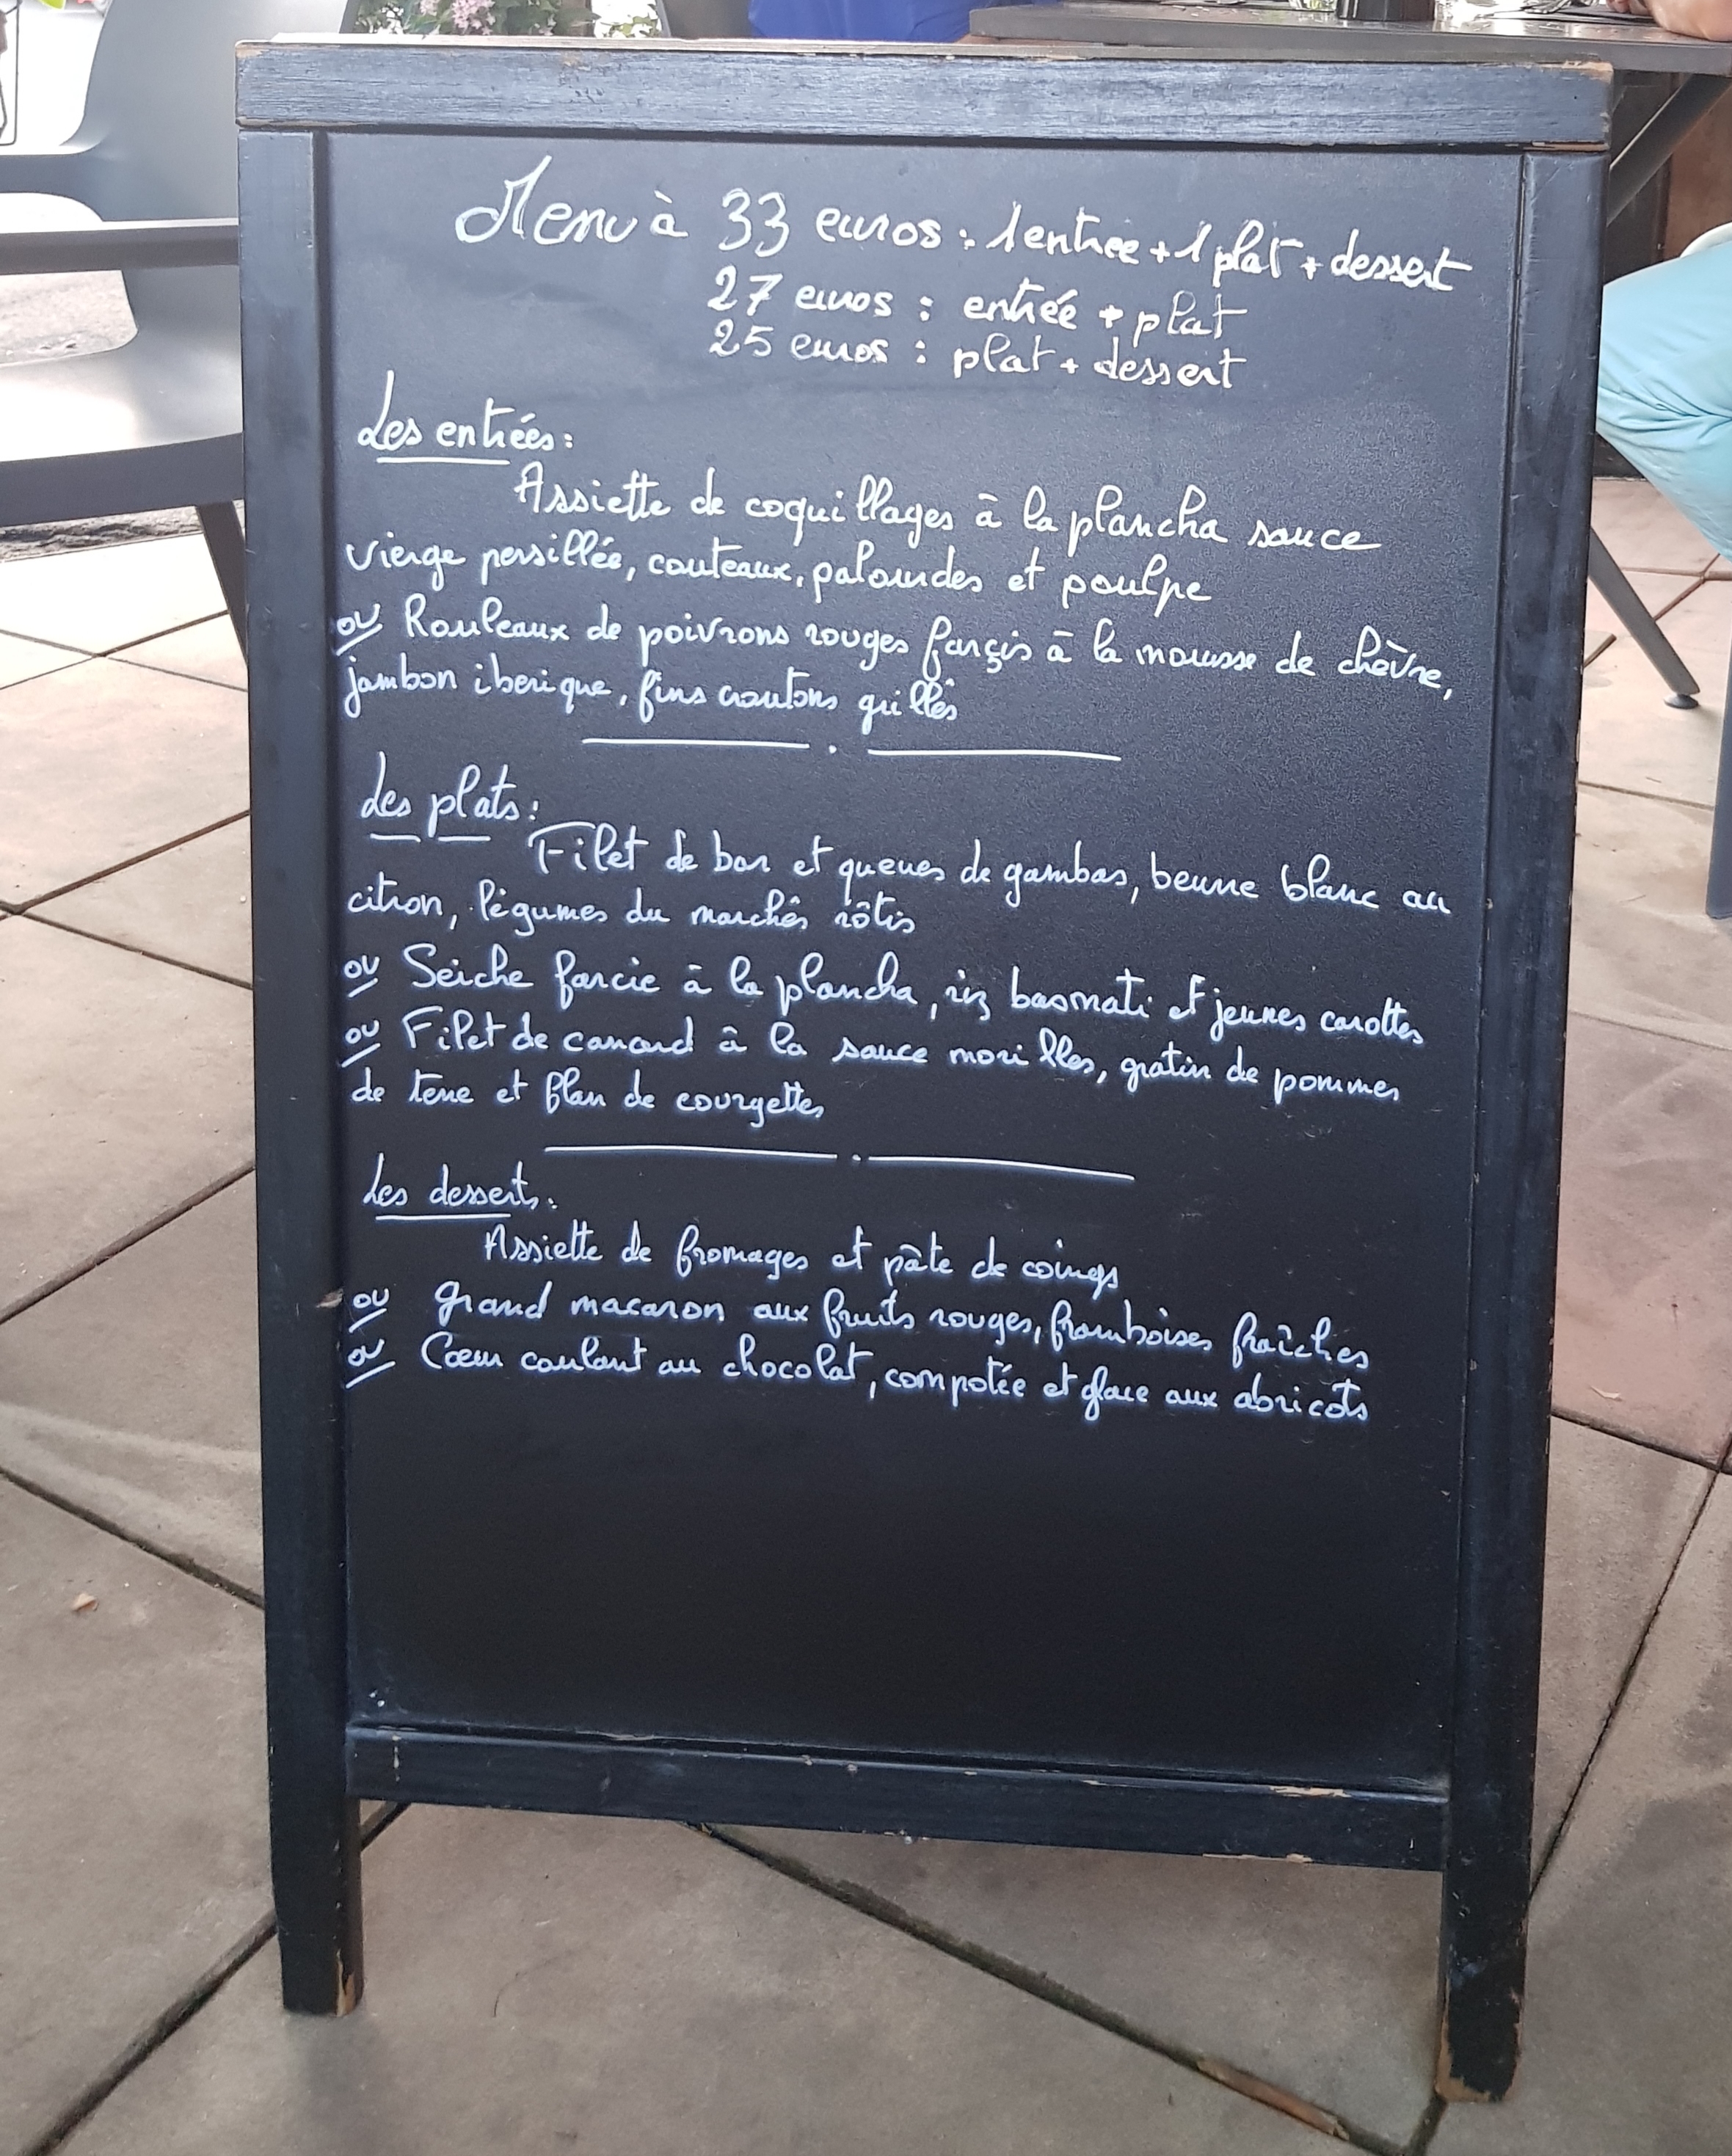 Menu à 33 euros : 1 entrée + 1 plat + dessert
27 euros : entrée + plat
25 euros : plat + dessert
Les entrées :
Assiette de coquillages à la plancha sauce
vierge persillée, couteaux, palourdes et poulpe
ou Rouleaux de poivrons rouges farçis à la mousse de chèvre,
jambon iberique, fins croutons grillés
Les plats :
Filet de bar et queues de gambas, beurre blanc au
citron, légumes du marchés rôtis
ou Seiche farcie à la plancha, riz basmati et jeunes carottes
ou Filet de canard à la sauce morilles, gratin de pommes
de terre et flan de courgettes
Les desserts :
Assiette de fromages et pâte de coings
ou grand macaron aux fruits rouges, framboises fraîches
ou Cœur coulant au chocolat, compotée et glace aux abricots